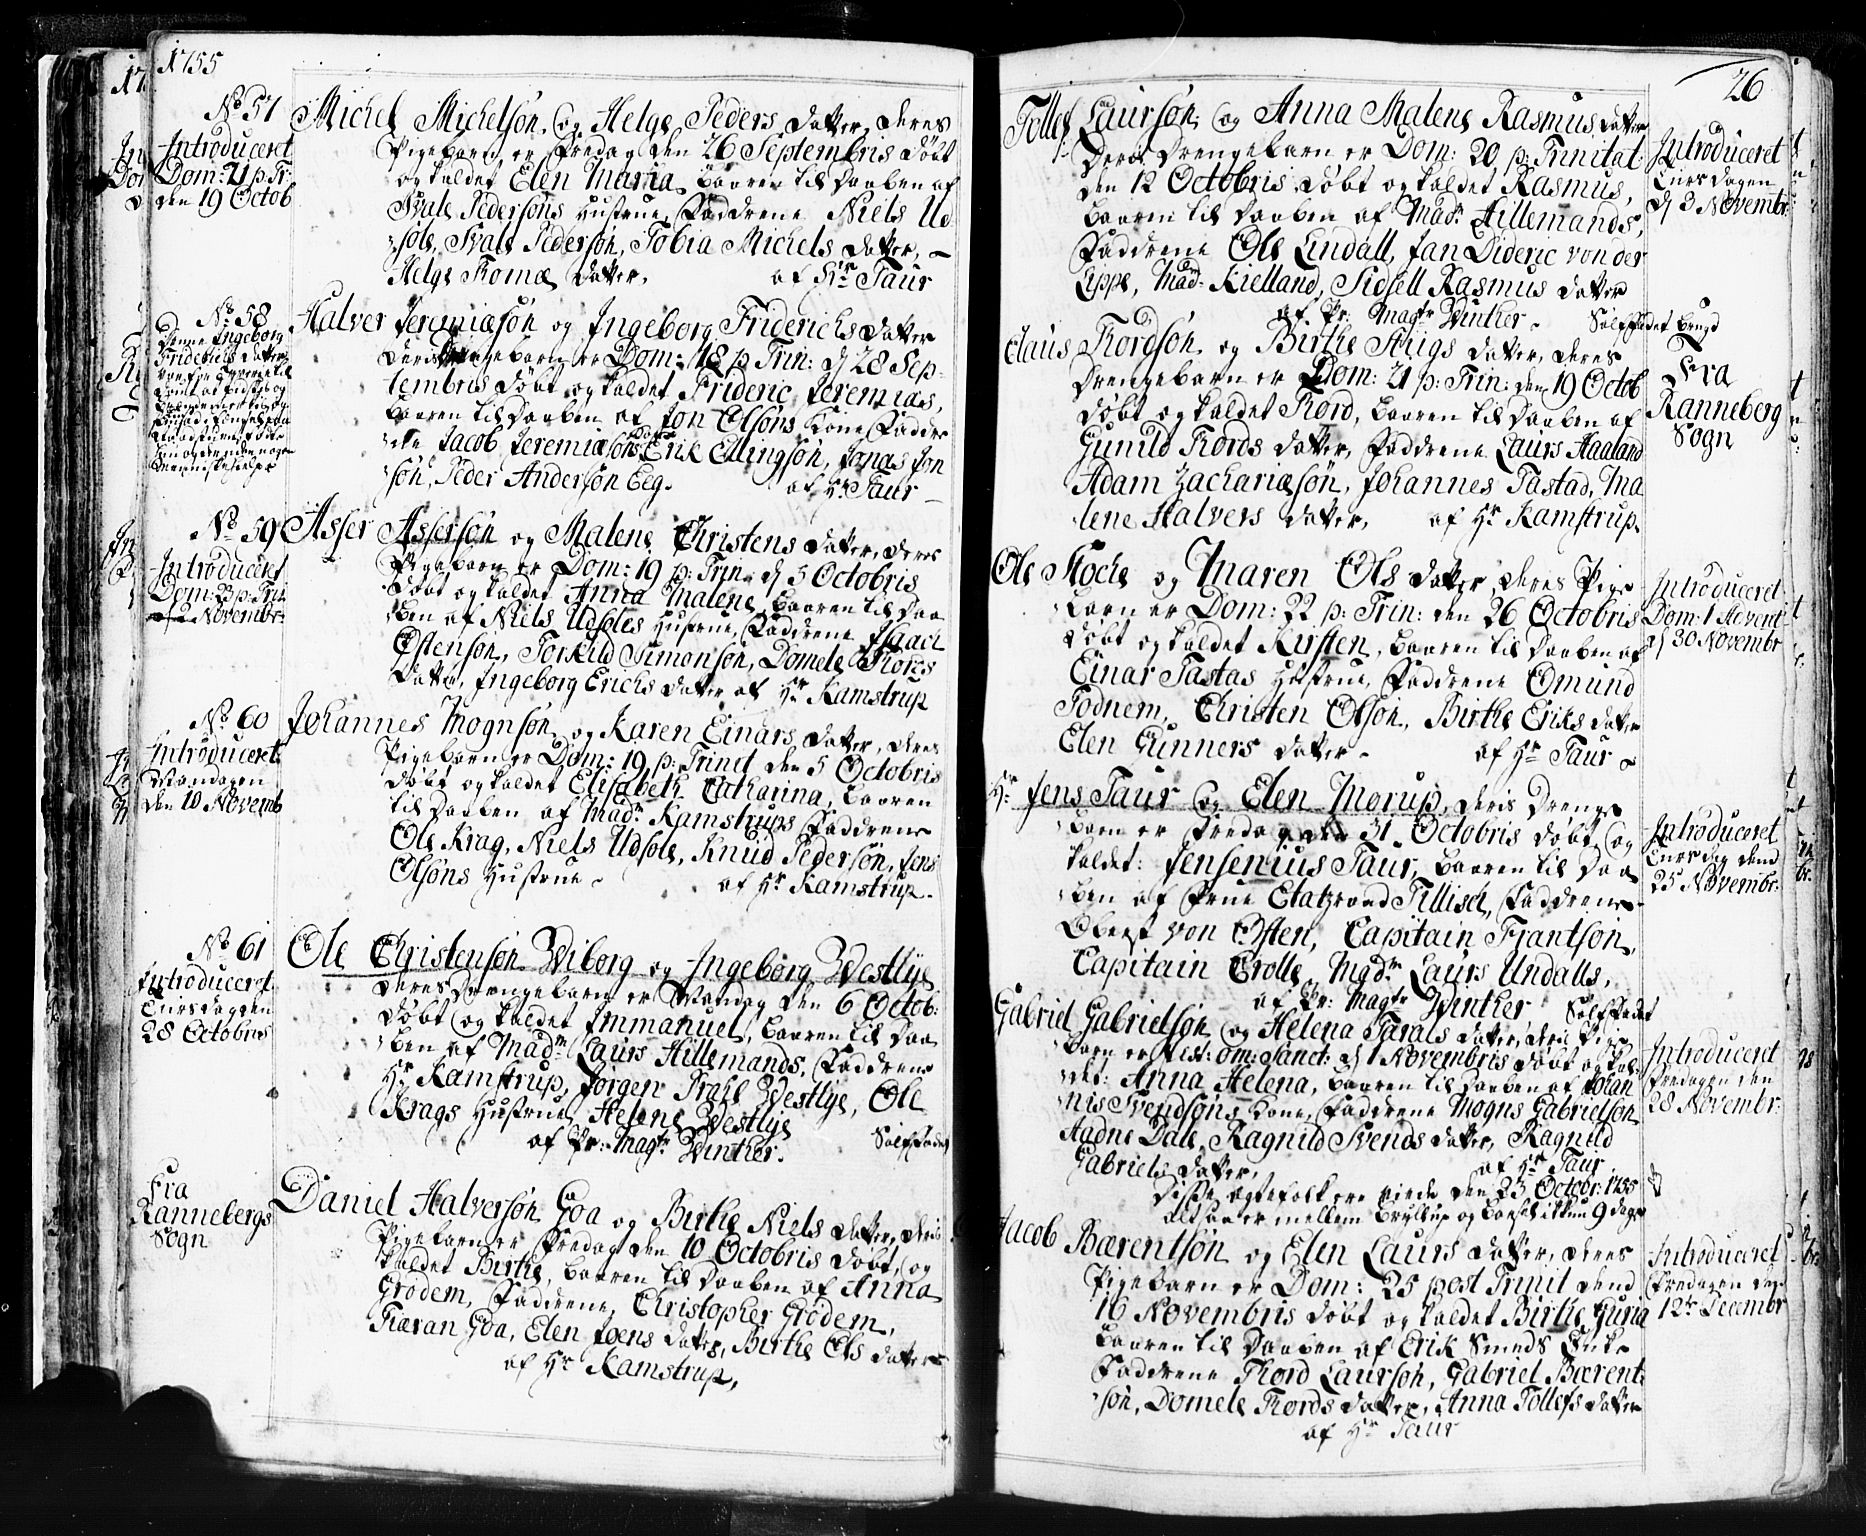 1755
No 57
Introduceret
Dom: 21 p: Tr:
den 19 Octob
Michel Michelsøn og Helge Peders datter, deres
Pigebarn er Fredag den 26 Septembris døbt
og kaldet Elen Maria, baaren til Daaben af
Svale Pedersøns Hustrue, Fadderne Niels Ud
søle, Svale Pedersøn, Tobia Michels datter,
Helge Tromæ datter, af Hr Taur
No 58
Denne Ingeborg
Friderichs datter
Halver Jeremiæsøn og Ingeborg Friderichs datter
deres Drengebarn er Dom: 18 p Trin: d 28 Sep-
tembris døbt og kaldet Frideric Jeremias,
baaren til Daaben af Jon Olsøns Kone, Faddre
ne Jacob Jeremiæsøn, Erik Ellingsøn, Jonas Jon
søn, Peder Andersøn Eeg. af Hr Taur
No 59
Introduceret
Dom: 23 p: Trin
Novembr:
Asser Assersøn og Malene Christens datter, deres
Pigebarn er Dom: 19 p: Trin d 5 Octobris
døbt og kaldet Anna Malene, baaren til Daa
ben af Niels Udsøles Hustrue, Fadderne Isaach
Østensøn, Torkild Simonsøn, Domele Thords
datter, Ingeborg Erichs datter af Hr Kamstrup
No 60
Introduceret
Mandagen
den 10 Novemb
Johannes Mognsøn og Karen Einars datter, deres
Pigebarn er Dom: 19 p: Trinit den 5 Octobris
døbt og kaldet Elisabeth Catharina, baaren
til Daaben af Madm Kamstrups Fadderne
Ole Krag, Niels Udsøle, Knud Pedersøn, Jens
Olsøns Hustrue af Hr Kamstrup.
No 61
Introduceret
Tiirsdagen
28 Octobris
Ole Christensøn Wiborg og Ingeborg Westlye
deres Drengebarn er Mandag den 6 Octob:
døbt og kaldet Immanuel, baaren til Daa
ben af Madm Laurs Hillemands, Fadderne
Hr Kamstrup, Jørgen Prahl Westlye, Ole
Krags Hustrue, Helene Westlye
af Pr: Magr Winther. Sølffadet
Fra
Rannebergs
Sogn
Daniel Halversøn Goa og Birthe Niels datter, deres
Pigebarn er Fredag den 10 Octobris døbt og
kaldet Birthe, baaren til Daaben af Anna
Grødem, Fadderne, Christopher Grødem,
Taran Goa, Elen Joens datter, Birthe Els datter
af Hr Kamstrup,
26
Tollef Laursøn og Anna Malene Rasmus datter
deres Drengebarn er Dom: 20 p: Trinitat
den 12 Octobris døbt og kaldet Rasmus,
baaren til Daaben af Madm Hillemands,
Fadderne Ole Lindall, Jan Dideric von der
Lippe, Madm Kielland, Sidsell Rasmus datter
af Pr. Magtr Winther. Sølffadet brugt
Introduceret
Tiirsdagen
d 3 Novembr
Claus Thordsøn og Birthe Augs datter, deres
Drengebarn er Dom: 21 p: Trin: den 19 Octob
døbt og kaldet Thord, baaren til Daaben af
Gunild Thords datter, Fadderne Laurs Haaland
Adam Zachariæsøn, Johannes Tastad, Ma
lene Halvers datter, af Hr Kamstrup.
Fra
Ranneberg
Sogn
Ole Stoche og Maren Ols datter, deres Pige
barn er Dom: 22 p: Trin: den 26 Octobris
døbt og kaldet Kirsten, baaren til Daaben af
Einar Tastas Hustrue, Fadderne Omund
Todnem, Christen Olsøn, Birthe Eriks datter
Elen Gunners datter af Hr Taur
Introduceret
Dom: 1 Advent
d 30 Novembr
Hr Jens Taur og Elen Morup, deris Drenge
barn er Fredag den 31 Octobris døbt og
kaldet: Jensenius Taur, baaren til Daa
ben af Frue Etatzraad Tillisch, Fadderne
Oberst von Osten, Capitain Frantson,
Capitain Crolle, Madm Laurs Undalls,
af Pr: Magtr Winther Sølffadet
Introduceret
Tiirsdag dend
25 Novembr:
Gabriel Gabrielsøn og Helena Tarals datter, deris Pige
barn er Fest: om: Sanct: d 1 Novembris døbt og kal
det: Anna Helena, baaren til Daaben af Johan
nis Svendsøns Kone, Fadderne Mogns Gabrielsøn
Aadne Dale, Ragnild Svends datter, Ragnild
Gabriels datter, af Hr Taur
Disse Ægtefolk ere viede den 23 Octobr: 1755
altsaa er mellem Bryllup og Barsel ikkun 9 dage
Introduceret
Fredagen den
28 Novembr:
Jacob Bærentsøn og Elen Laurs datter, deres
Pigebarn er Dom: 25 post Trinit dend
16 Novembris døbt og kaldet Birthe Guria
baaren til Daaben af Erik Smeds Enke
Fadderne Thord Laursøn, Gabriel Bærent
søn, Domele Thords datter, Anna Tollefs datter
af Hr Taur
Introduceret
Fredagen den
12te Decembr